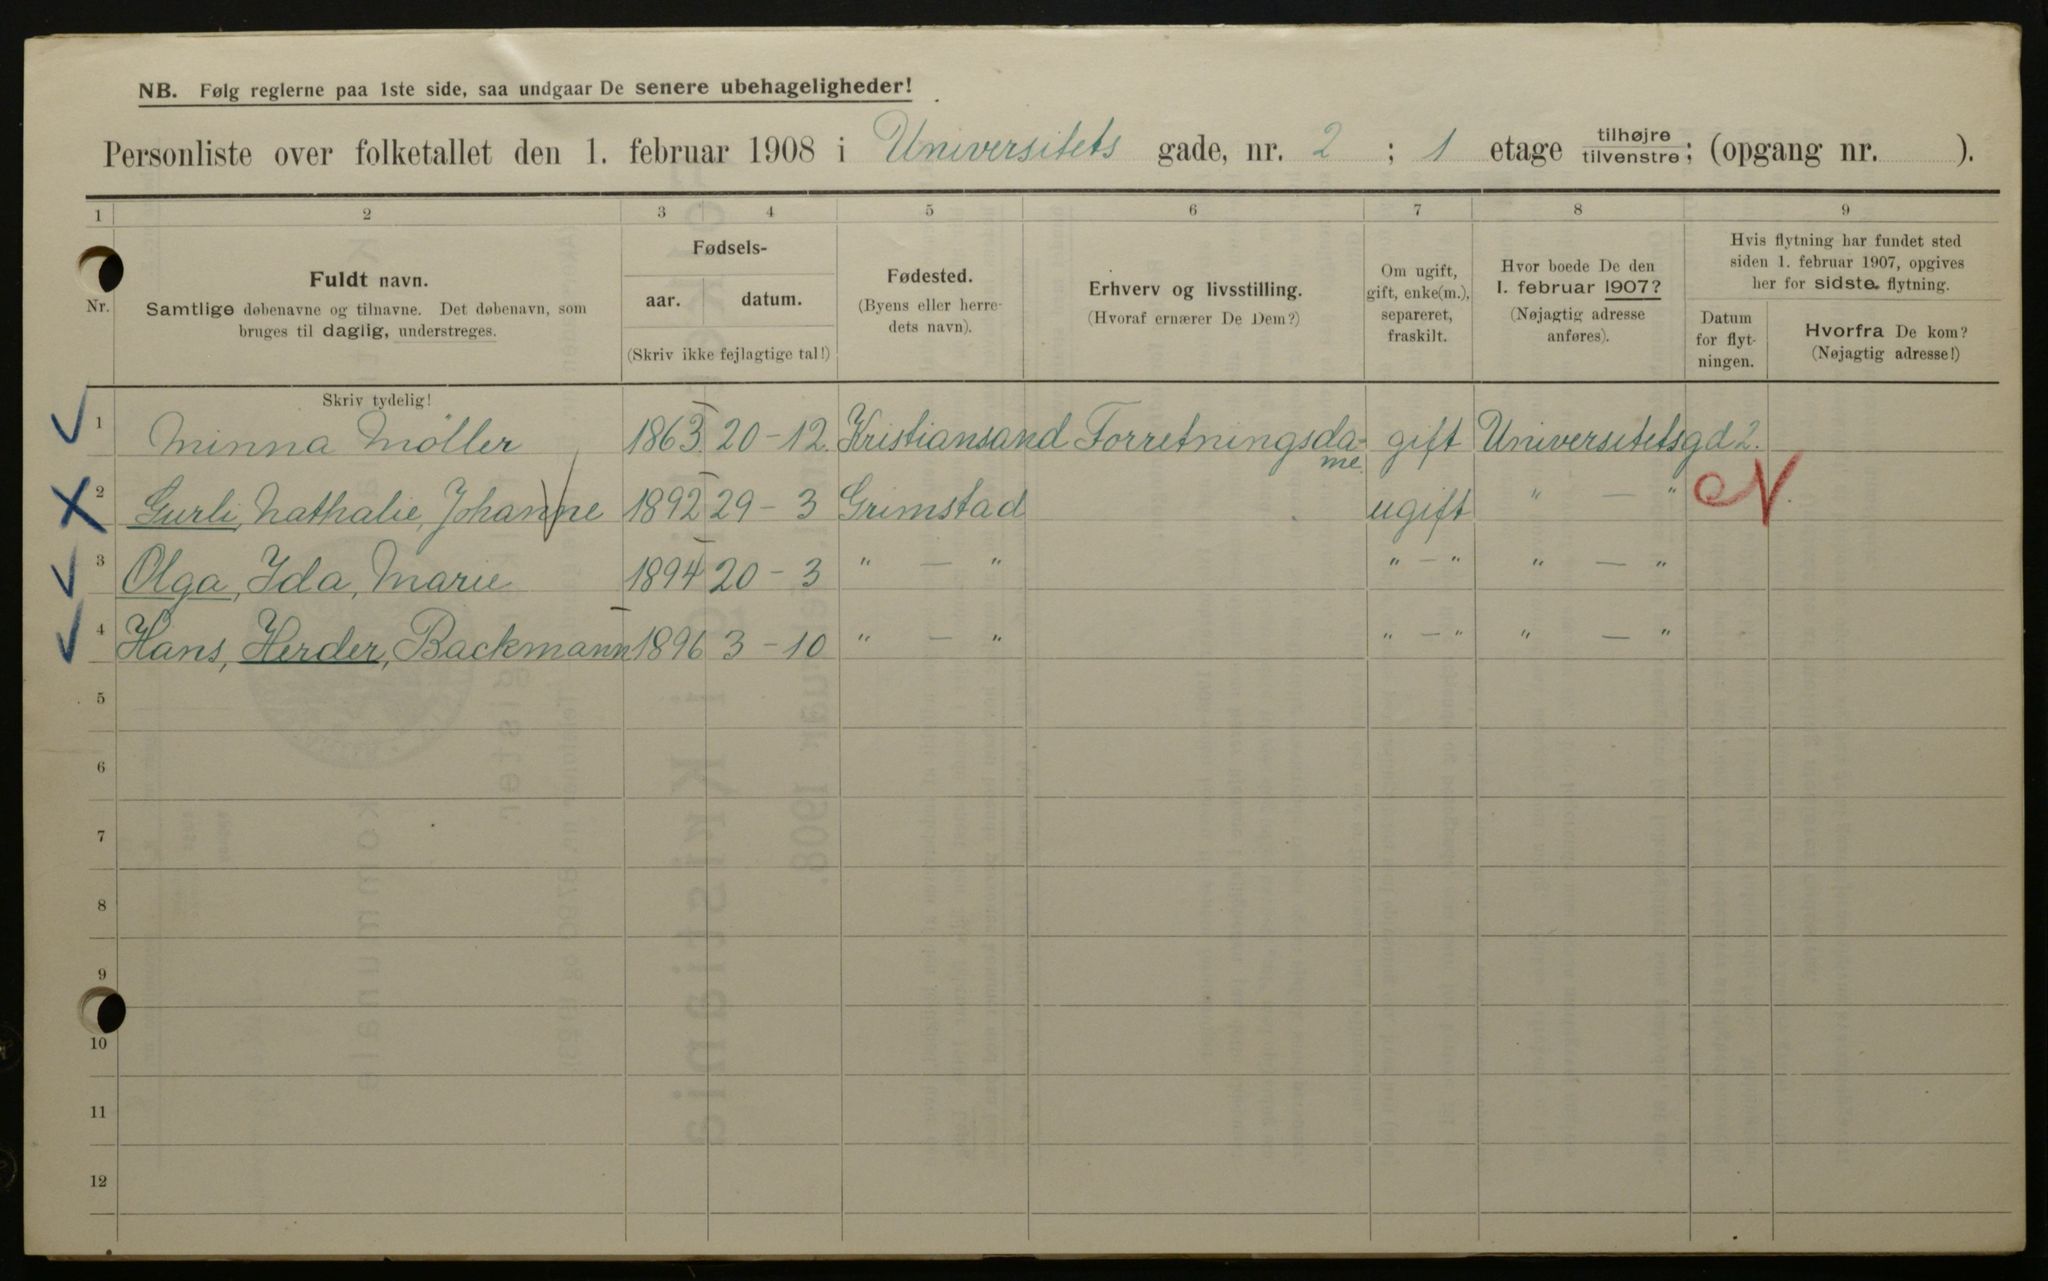 NB. Følg reglerne paa 1ste side, saa undgaar De senere ubehageligheder!
Personliste over folketallet den 1. februar 1908 i Universitets gade, nr. 2 ; 1 etage tilhøjre/tilvenstre; (opgang nr. ).
1 2 3 4 5 6 7 8 9
Nr.
Fuldt navn.
Samtlige døbenavne og tilnavne. Det døbenavn, som
bruges til daglig, understreges.
Fødsels-
aar. datum.
(Skriv ikke fejlagtige tal!)
Fødested.
(Byens eller herre-
dets navn).
Erhverv og livsstilling.
(Hvoraf ernærer De Dem?)
Om ugift,
gift, enke(m.),
separeret,
fraskilt.
Hvor boede De den
1. februar 1907?
(Nøjagtig adresse
anføres).
Hvis flytning har fundet sted
siden 1. februar 1907, opgives
her for sidste flytning.
Datum
for flyt-
ningen.
Hvorfra De kom?
(Nøjagtig adresse!)
Skriv tydelig!
1 Minna Möller 1863 20-12. Kristiansand Forretningsda- gift Universitetsgd 2.
me.
2 Gurli, Nathalie, Johanne 1892 29-3 Grimstad ugift " — " N.
3 Olga, Ida, Marie 1894 20-3 " — " " — " " — "
4 Hans, Herder, Backmann 1896 3-10 " — " " — " " — "
5
6
7
8
9
10
11
12